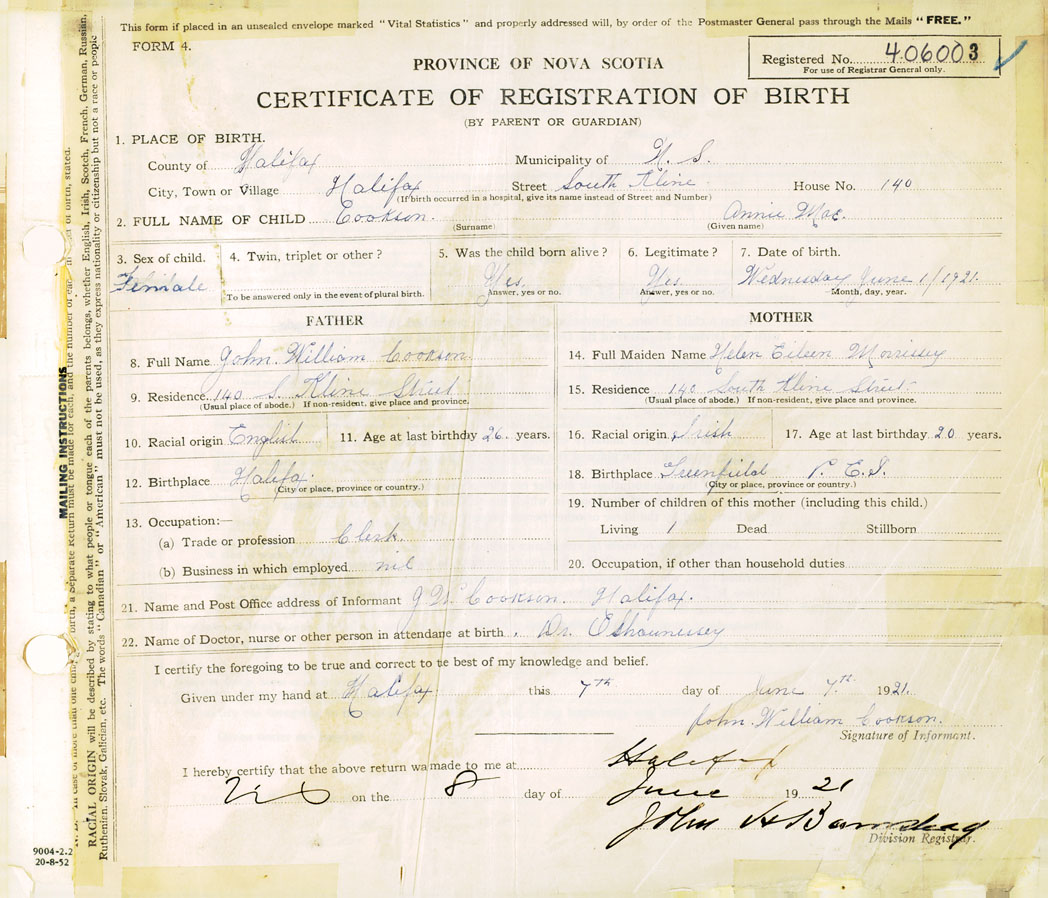 This form if placed in an unsealed envelope marked "Vital Statistics" and properly addressed will, by order of the Postmaster General pass through the Mails "FREE."
FORM 4.
Registered No. 406003
For use of Registrar General only.
PROVINCE OF NOVA SCOTIA
CERTIFICATE OF REGISTRATION OF BIRTH
(BY PARENT OR GUARDIAN)
1. PLACE OF BIRTH.
County of Halifax Municipality of N. S.
City, Town or Village Halifax Street South Kline House No. 140
(If birth occurred in a hospital, give its name instead of Street and Number)
2. FULL NAME OF CHILD Cookson. Annie Mae.
(Surname) (Given name)
3. Sex of child. 4. Twin, triplet or other? 5. Was the child born alive? 6. Legitimate? 7. Date of birth.
Female Yes. Yes. Wednesday June 1/1921.
To be answered only in the event of plural birth. Answer, yes or no. Answer, yes or no. Month, day, year.
FATHER
8. Full Name John William Cookson
9. Residence. 140 S. Kline Street
(Usual place of abode.) If non-resident, give place and province.
10. Racial origin English 11. Age at last birthday 26 years.
12. Birthplace Halifax.
(City or place, province or country.)
13. Occupation:—
(a) Trade or profession Clerk.
(b) Business in which employed nil
MOTHER
14. Full Maiden Name Helen Eileen Morrissey
15. Residence 140 South Kline Street.
(Usual place of abode.) If non-resident, give place and province.
16. Racial origin Irish 17. Age at last birthday 20 years.
18. Birthplace Greenfield P. E. I.
(City or place, province or country.)
19. Number of children of this mother (including this child.)
Living 1 Dead Stillborn
20. Occupation, if other than household duties
21. Name and Post Office address of Informant J. W. Cookson. Halifax.
22. Name of Doctor, nurse or other person in attendane at birth. Dr.
I certify the foregoing to be true and correct to te best of my knowledge and belief.
Given under my hand at Halifax this 7th day of June 7th. 1921.
John William Cookson.
Signature of Informant.
I hereby certify that the above return wa made to me at Halifax
on the 8 day of June 1921
John H
Division Registrar.
MAILING INSTRUCTIONS
birth, a separate Return must be made for each, and the number of eac birth, stated.
RACIAL ORIGIN will be described by stating to what people or tongue each of the parents belongs, whether English, Irish, Scotch, French, German, Russian,
Ruthenian, Slovak, Galician, etc. The words "Canadian" or "American" must not be used, as they express nationality or citizenship but not a race or people
9004-2.2
20-8-52